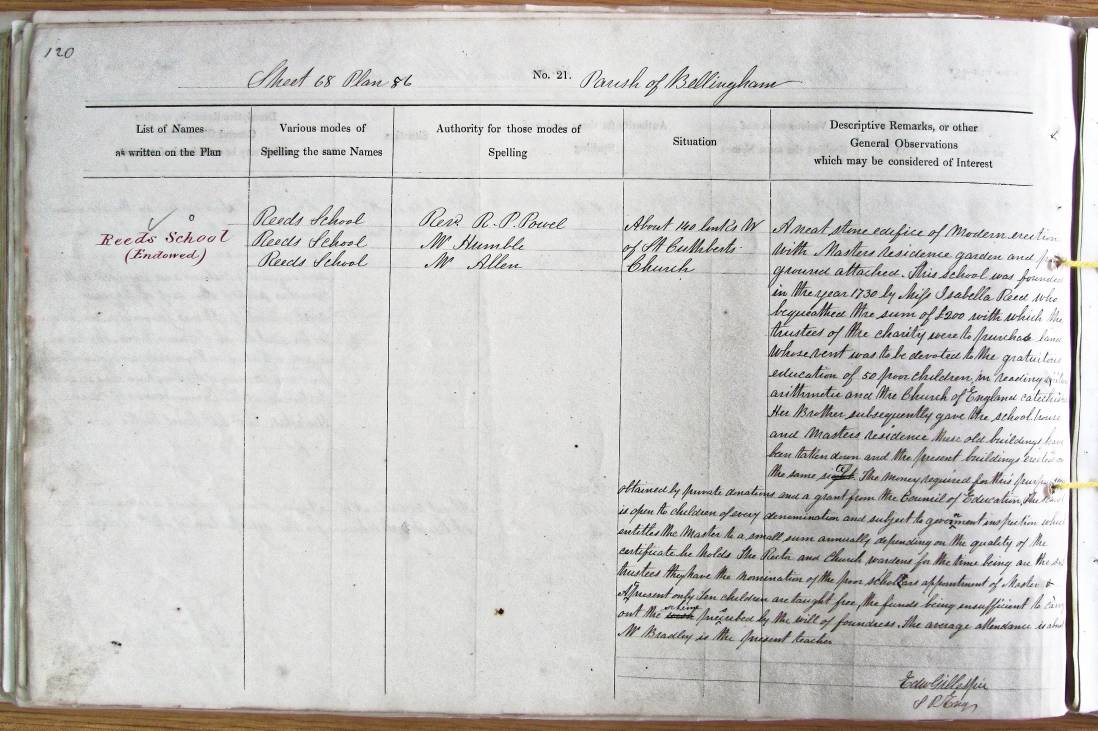 120
Sheet 68 Plan 86 No. 21. Parish of Bellingham
List of Names
as written on the Plan
Various modes of
Spelling the same Names
Authority for those modes of
Spelling
Situation
Descriptive Remarks, or other
General Observations
which may be considered of Interest
Reeds School
(Endowed)
Reeds School
Reeds School
Reeds School
Revd. R. P. Powel
Mr Humble
Mr Allen
About 140 links W
of St Cuthberts
Church
A neat stone edifice of Modern erection
with Masters residence garden and
ground attached. This school was founded
in the year 1730 by Miss Isabella Reed who
bequeathed the sum of £200 with which the
trustees of the charity were to purchase land
whose rent was to be devoted to the gratuitous
education of 50 poor children, in reading
arithmetic and the Church of England catechism
Her Brother subsequently gave the school house
and Masters residence these old buildings have
been taken down and the present buildings erected on
the same, The money required for this
obtained by private donations and a grant from the Council of Education, The
is open to children of every denomination and subject to government inspection which
entitles the Master to a small sum annually depending on the quality of the
certificate he holds The Rector and Church wardens for the time being are the
trustees they have the nomination of the poor schollars appointment of Master &
At present only Ten children are taught free, the funds being insufficient to carry
out the scheme prescribed by the will of foundress. The average attendance is about
Mr Bradley is the present teacher
Edw Gillespie
S R Eng